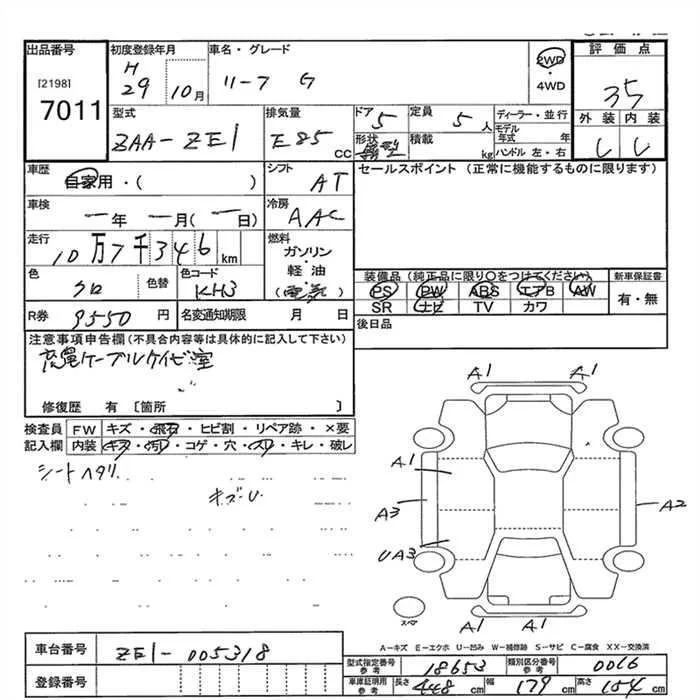 出品番号
[2198]
7011
初度登録年月
H
29
10月
車名・グレード
リーフ G
2WD
・4WD
評価点
35
型式
ZAA-ZE1
排気量
E25 CC
ドア
5
定員
5人
ディーラー・並行
モデル年式 年
形状
積載 kg
ハンドル 左・右
外装 内装
車歴
自家用・( )
シフト
AT
セールスポイント (正常に機能するものに限ります)
車検
ー年 ー月(ー日)
冷房
AAC
走行
10万7千346 km
燃料
ガソリン
・軽油・
(電気)
色
クロ
色替
色コード
KH3
装備品(純正品に限り○をつけてください)
PS PW ABS エアB AW
SR ナビ TV カワ
新車保証書
有・無
R券 9550円
名変通知期限 月 日
後日品
注意事項申告欄(不具合内容等は具体的に記入して下さい)
充電ケーブルケイビ室
修復歴 有 〔箇所 〕
検査員
記入欄
FW キズ・飛石・ヒビ割・リペア跡・×要
内装 キズ・汚れ・コゲ・穴・スリ・キレ・破レ
シートヘタリ
キズ・U
A1 A1
A1
A3
A2
UA3
スペア
A1 A1
A-キズ E-エクボ U-凹み W-補修跡 S-サビ C-腐食 XX-交換済
車台番号
ZE1-005318
登録番号
型式指定番号 参考
18653
類別区分番号 参考
0016
車庫証明用 参考
長さ 448 cm
幅 179 cm
高さ 154 cm